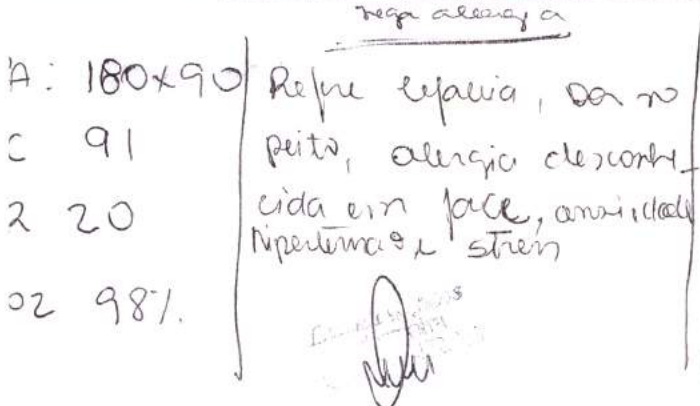 nega alergia
A: 180x90
C 91
R 20
O2 98%.
Refere cefaleia, Dor no
peito, alergia desconhe-
cida em face, ansiedade
e stress